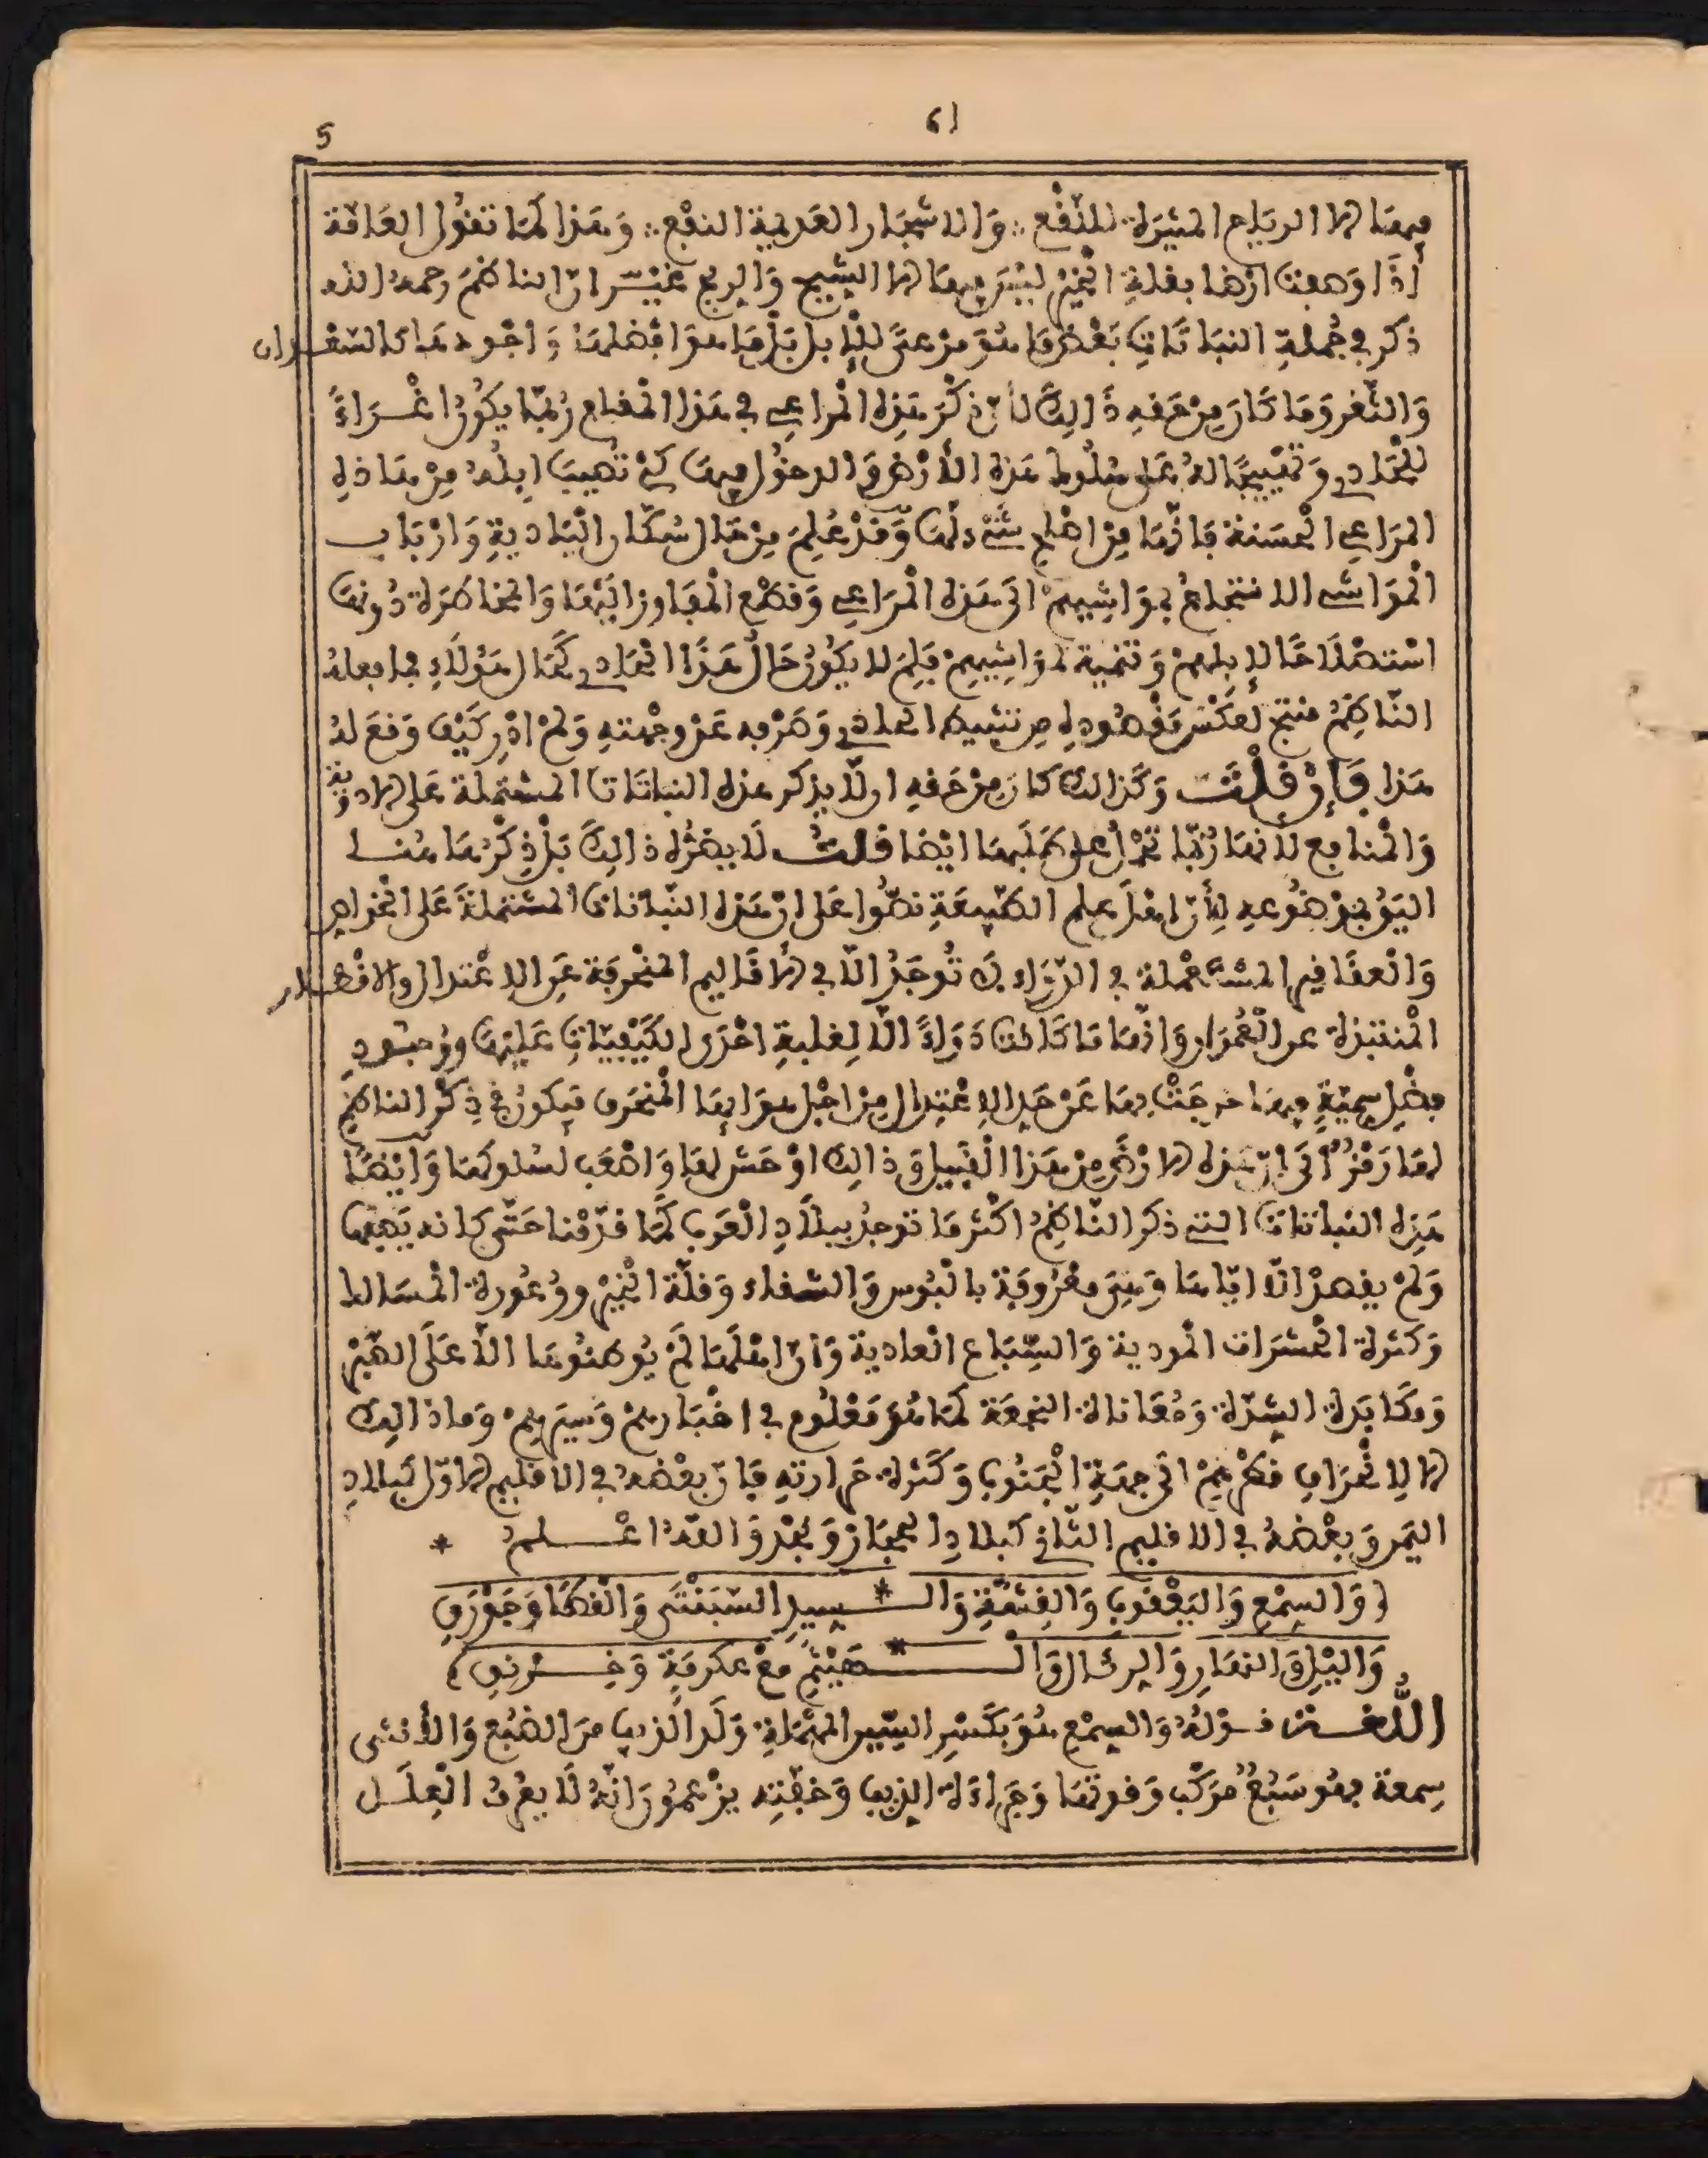 61
5
فيها الا الرياح المثيرة للنقع ∴ والاشجار العديمة النفع ∴ وهذا كما تقول العامة
اذا وصفت ارضا بقلة الخير ليس فيها الا الشيح والريح غير ان الناظم رحمه الله
ذكر في جملة النباتات بعض ما هو مرعى للابل بل بما هو افضلها واجودها كالسعدان
والثغر وما كان من حقه ذالك لان ذكر هذه المراعي في هذا المقام ربما يكون اغراء
للحادي وتهييجا له على سلوط هذه الارض والدخول فيها كي تصيب ابله من هاذه
المراعي الحسنة فانها من اصلح شيء لها وقد علم من حال سكان البادية وارباب
المواشي الانتجاع بمواشيهم الى هذه المراعي وقطع المفاوز اليها والمخاطرة دونها
استصلاحا لابلهم وتنمية لمواشيهم فلم لا يكون حال هذا الحادي كحال هؤلاء فما فعله
الناظم منتج لعكس مقصوده من تنشيط الحادي وصرفه عن وجهته ولم ادر كيف وقع له
هذا فإن قلت وكذالك كان من حقه ان لا يذكر هذه النباتات المشتملة على الادوية
والمنافع لانها ربما تحرا على طلبها ايضا قلت لا يضره ذالك بل ذكرها هنا
اليق بموضوعه لأن اهل علم الطبيعة نصوا على ان هذه النباتات المشتملة على الخواص
والعقاقير المستعملة في الدواء لا توجد الا في الاقاليم المنحرفة عن الاعتدال والاقطار
المنتبذة عن العمران وانها ما كانت دواء الا لغلبة احدى الكيفيات عليها ووجود
فضل سمية فيها خرجت بها عن حد الاعتدال من اجل هوائها المنحرف فيكون في ذكر الناظم
لها رمز الى ان هذه الارض من هذا القبيل وذالك اوحش لها واصعب لسلوكها وايضا
هذه النباتات التي ذكر الناظم اكثرها توجد ببلاد العرب كما قدمنا حتى كانه يصفها
ولم يقصد الا اياها وهي معروفة بالبوس والشقاء وقلة الخير ووعورة المسالط
وكثرة الحشرات الموذية والسباع العادية وان اهلها لم يوطنوها الا على الصبر
ومكابدة الشدة ومعاناة النجعة كما هو معلوم في اخبارهم وسيرهم وما ذالك
الا لانحراف قطرهم الى جهة الجنوب وكثرة حرارته فان بعضه في الاقليم الاول كبلاد
اليمن وبعضه في الاقليم الثاني كبلاد الحجاز ونجد والله اعلم *
( والسمع واليعقوب والقشة وال * سيد السبنتى والقطا وجورق
والليق النهار والرئال وال * هيثم مع عكرمة وخرنق )
اللغة قوله والسمع هو بكسر السين المهملة ولد الذيب من الضبع والانثى
سمعة فهو سبع مركب وقوتها وجراءة الذيب وخفته يزعمون انه لا يعرف العلل